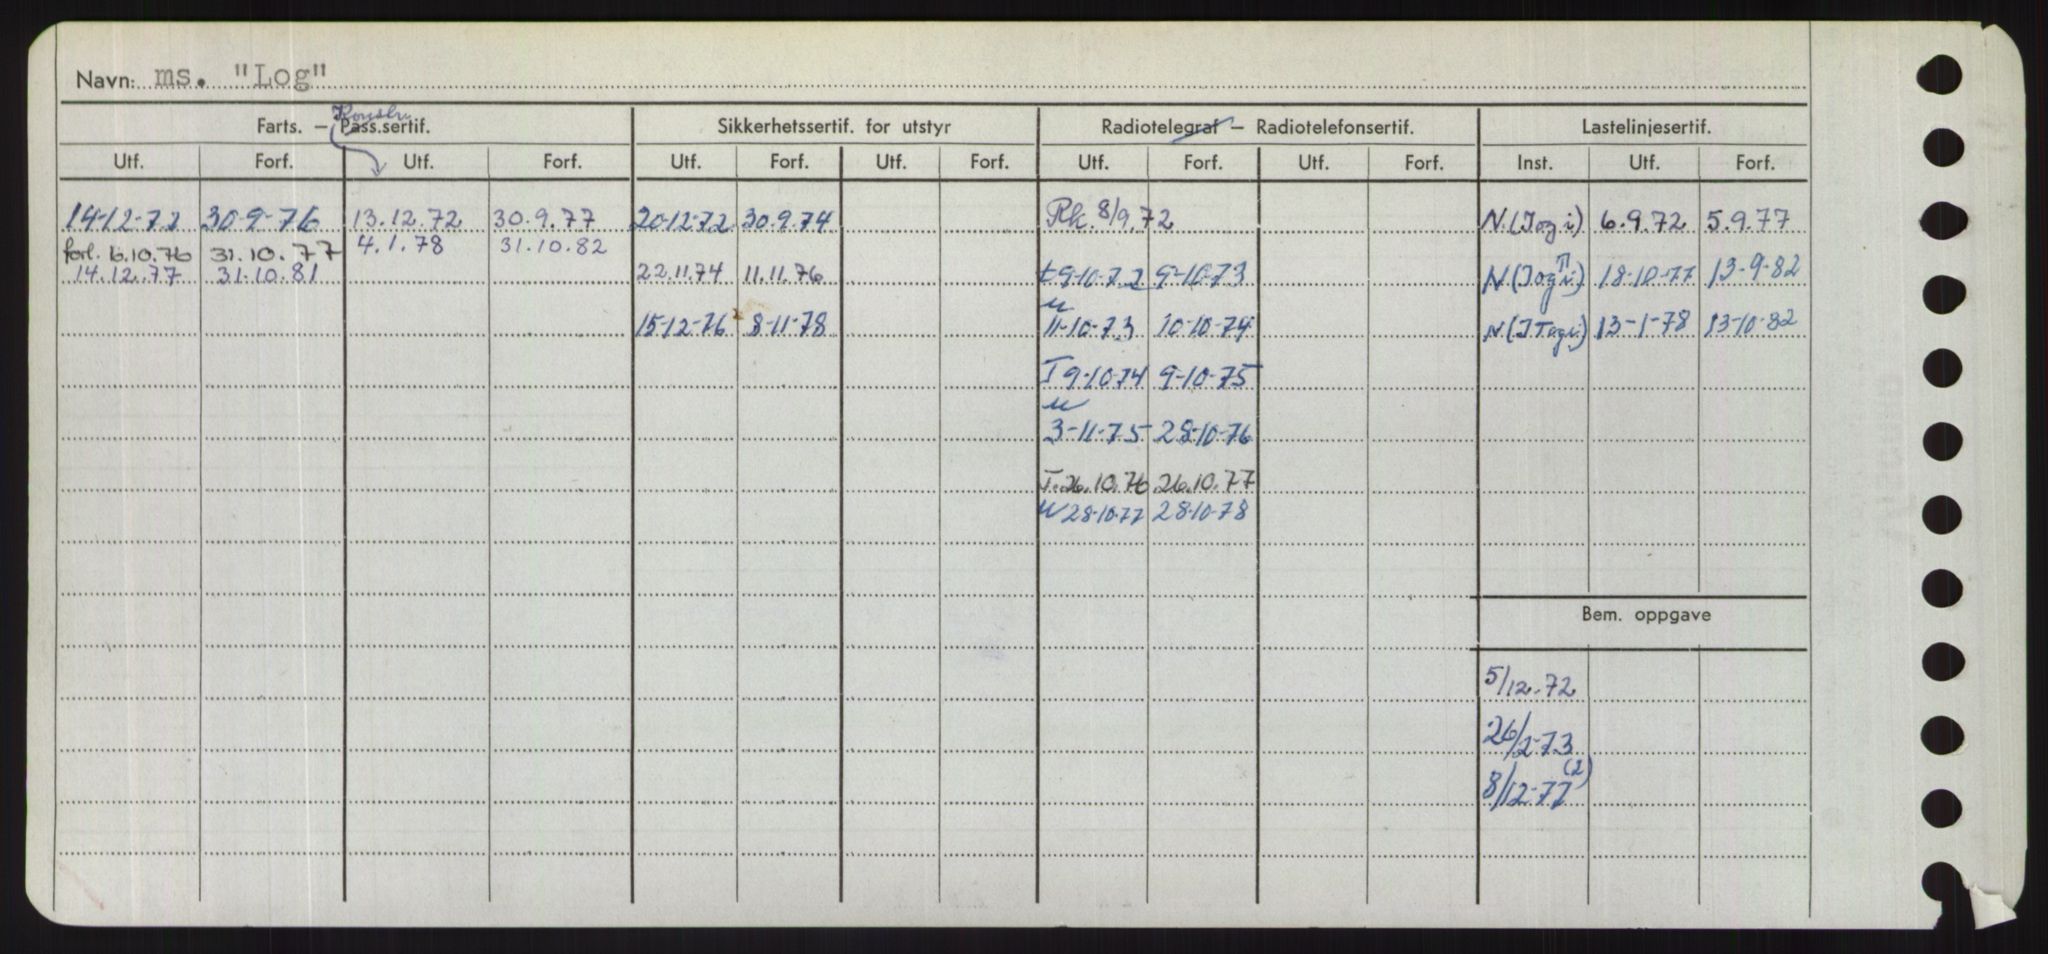 Navn: ms. "Log"
Konstr.
Farts. — Pass.sertif. Sikkerhetssertif. for utstyr Radiotelegraf — Radiotelefonsertif. Lastelinjesertif.
Utf. Forf. Utf. Forf. Utf. Forf. Utf. Forf. Utf. Forf. Utf. Forf. Inst. Utf. Forf.
14-12-72 30-9-76 13.12.72 30.9.77 20-12-72 30.9.74 Rk. 8/9.72 N.(I og i) 6.9.72 5.9.77
forl. 6.10.76 31.10.77 4.1.78 31.10.82
14.12.77 31.10.81 22.11.74 11.11.76 t 9-10-72 9-10-73 N(I og i) 18-10-77 13-9-82
15-12-76 8-11-78 11-10-73 10-10-74 13-1-78 13-10-82
I 9-10-74 9-10-75
3-11-75 28-10-76
I. 26.10.76 26.10.77
28-10-77 28-10-78
Bem. oppgave
5/12.72
26/2-73
8/12-77 (2)